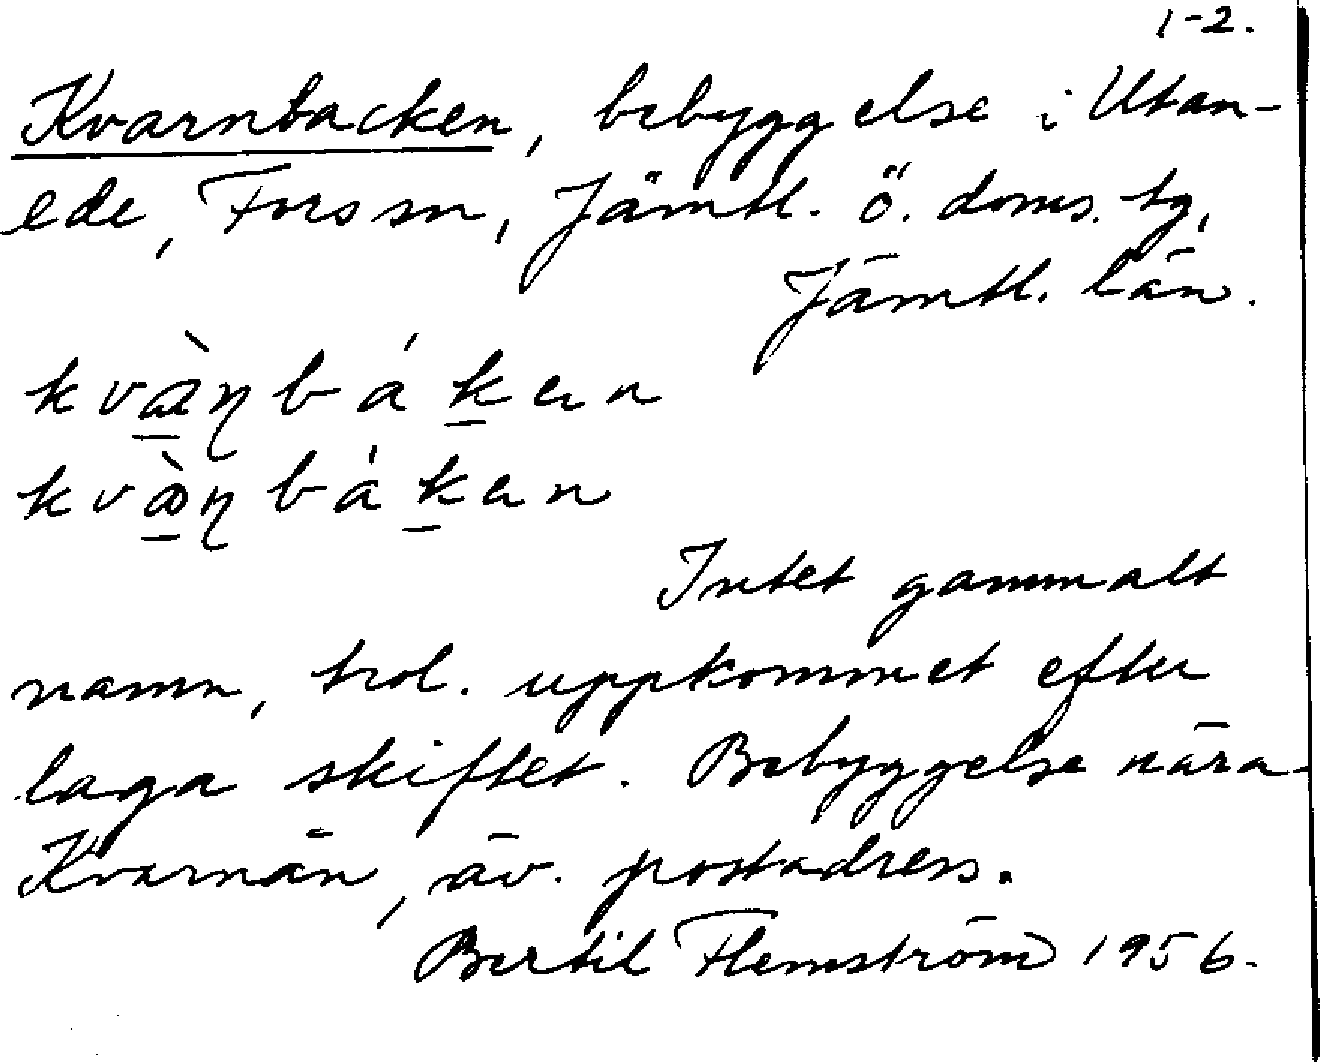 1-2.
Kvarnbacken, bebyggelse i Utan-
ede, Fors sn, Jämtl. ö. doms. tg,
Jämtl. län.
Intet gammalt
namn, trol. uppkommet efter
laga skiftet. Bebyggelse nära
Kvarnån, äv. postadress.
Bertil Flemström 1956.